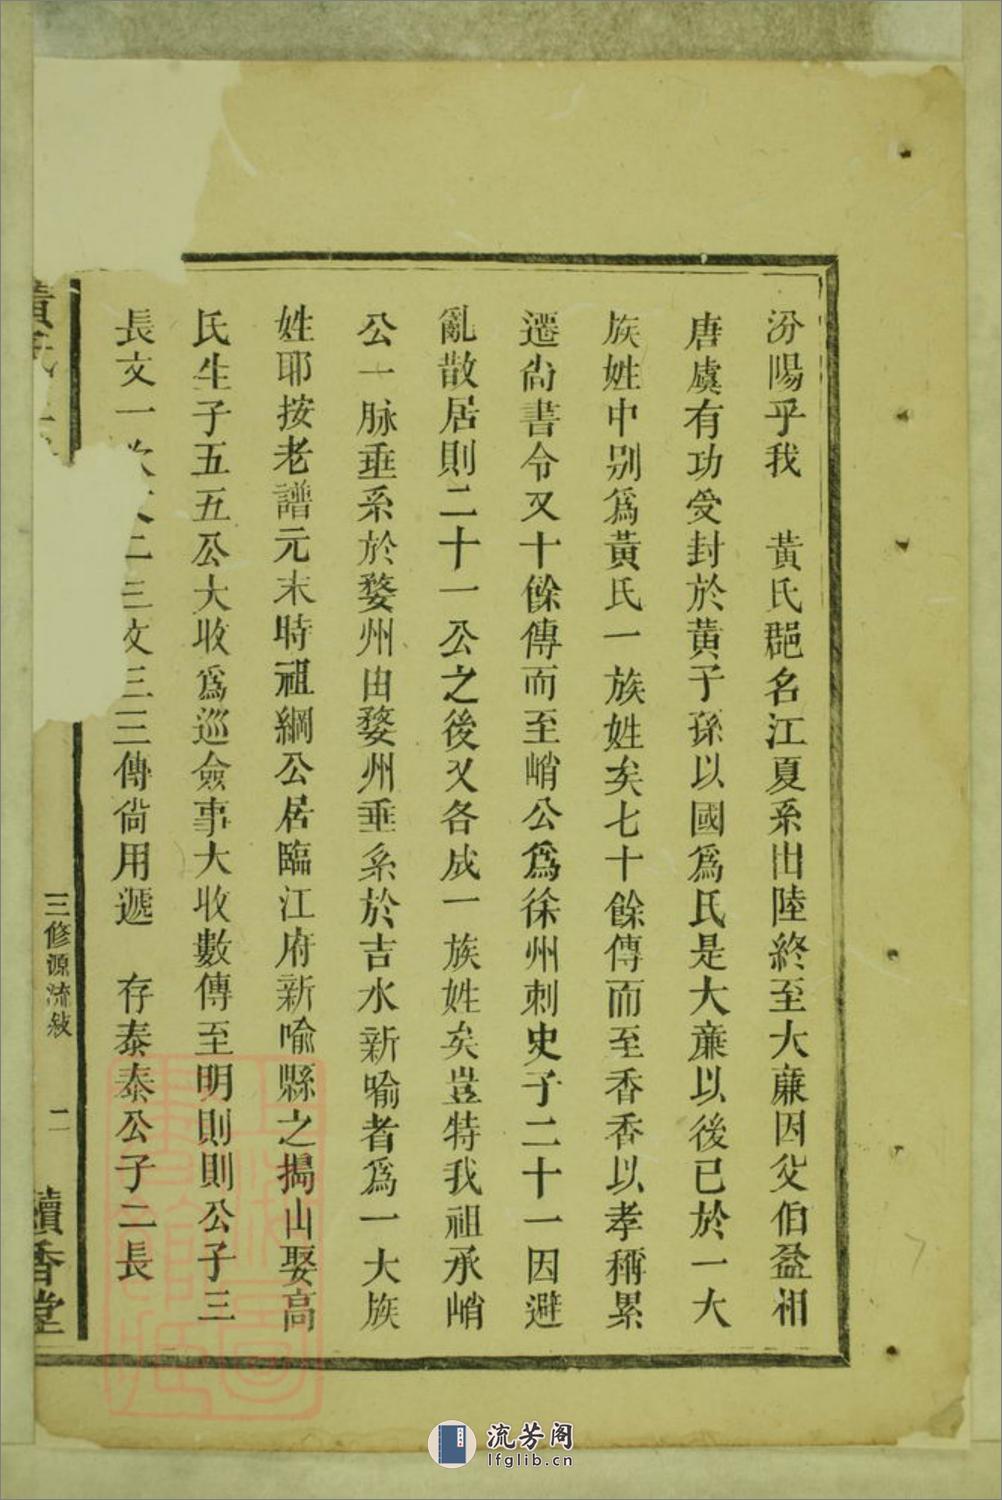 汾陽乎我　黃氏郡名江夏系出陸終至大亷因父伯益相
唐虞有功受封於黃子孫以國爲氏是大亷以後已於一大
族姓中別爲黃氏一族姓矣七十餘傳而至香香以孝稱累
遷尙書令又十餘傳而至峭公爲徐州刺史子二十一因避
亂散居則二十一公之後又各成一族姓矣豈特我祖承峭
公一脉垂系於婺州由婺州垂系於吉水新喻者爲一大族
姓耶按老譜元末時祖綱公居臨江府新喻縣之揭山娶高
氏生子五五公大收爲巡僉事大收數傳至明則則公子三
長文一次文二三文三三傳尙用遞　存泰泰公子二長
黃氏
三修源流敍
二
續香堂
流芳阁
lfglib.cn